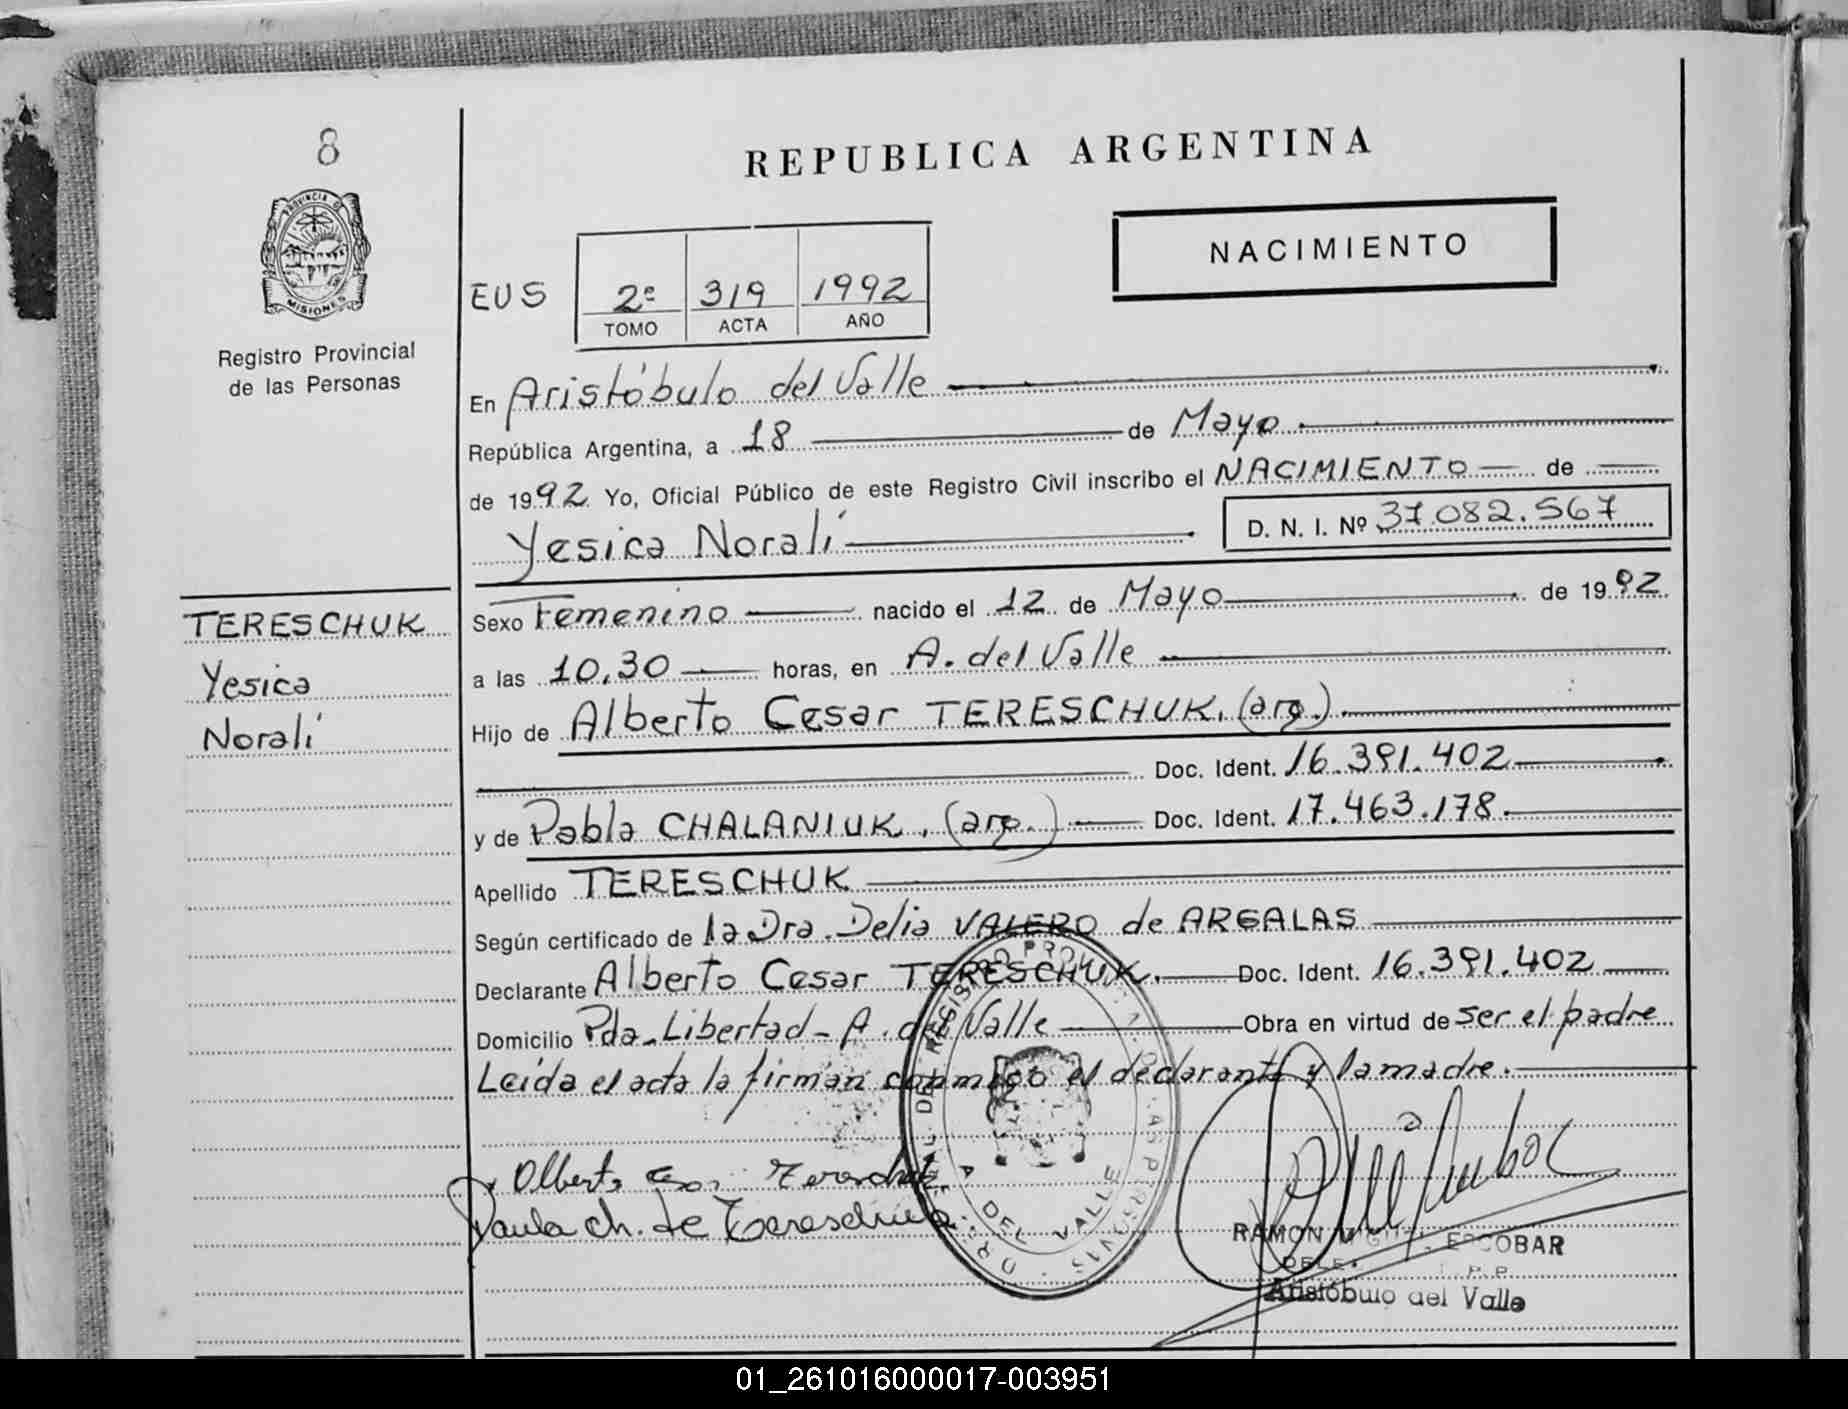 8
REPUBLICA ARGENTINA
PROVINCIA DE
MISIONES
Registro Provincial
de las Personas
EUS
2º 319 1992
TOMO ACTA AÑO
NACIMIENTO
En Aristóbulo del Valle
República Argentina, a 18 de Mayo
de 1992 Yo, Oficial Público de este Registro Civil inscribo el NACIMIENTO de
Yesica Noralí D. N. I. Nº 37.082.567
TERESCHUK
Yesica
Noralí
Sexo Femenino nacido el 12 de Mayo de 1992
a las 10,30 horas, en A. del Valle
Hijo de Alberto Cesar TERESCHUK. (arg.).
Doc. Ident. 16.391.402
y de Pabla CHALANIUK. (arg.) Doc. Ident. 17.463.178.
Apellido TERESCHUK
Según certificado de la Dra. Delia VALERO de ARGALAS
Declarante Alberto Cesar TERESCHUK. Doc. Ident. 16.391.402
Domicilio Pda. Libertad - A. del Valle Obra en virtud de ser el padre
Leída el acta la firman conmigo el declarante y la madre.
Alberto Tereschuk
Paula ch. de Tereschuk
A DEL VALLE
RAMON MIGUEL ESCOBAR
Aristóbulo del Valle
01_261016000017-003951